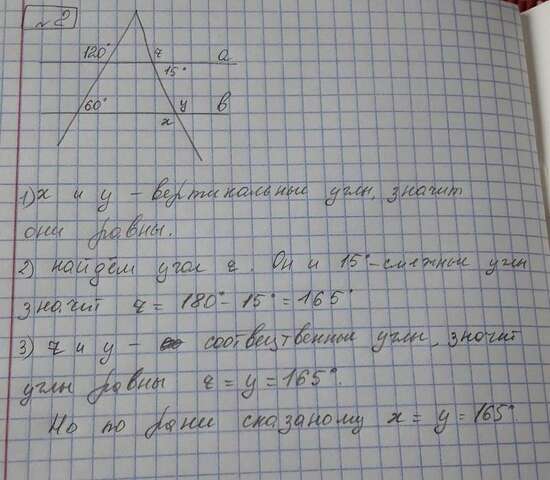 №2
120° z а
15°
60° у в
х
1) х и у – вертикальные углы, значит
они равны.
2) найдём угол z. Он и 15° – смежные углы
значит z = 180° - 15° = 165°
3) z и у – соотвецтвенные углы, значит
углы равны z = у = 165°.
Но по рани сказаному х = у = 165°.